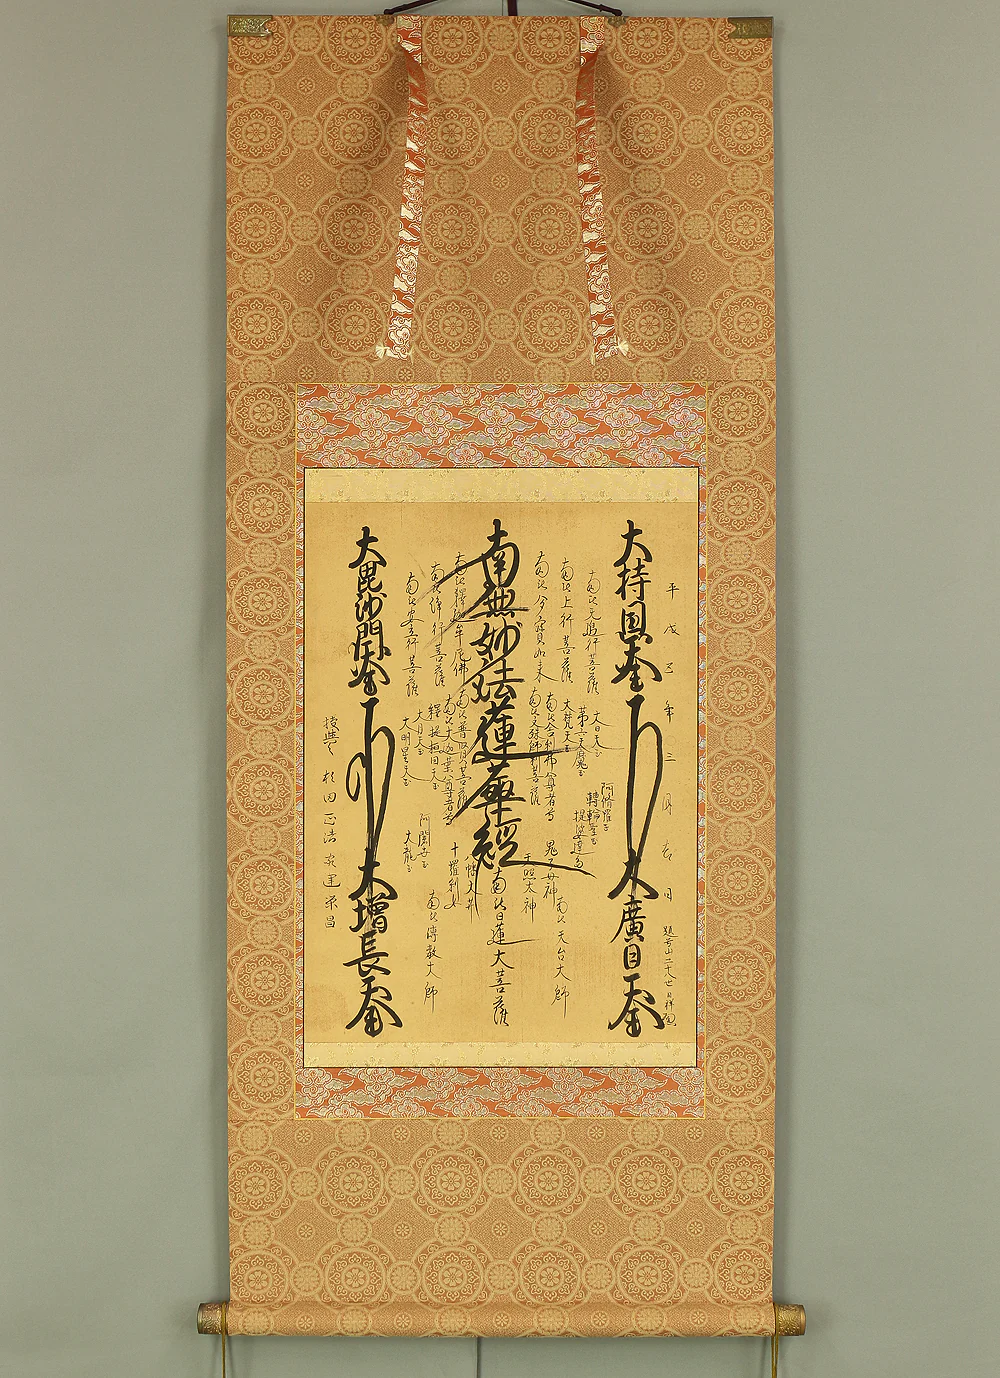 平成五年三月吉日
大持国天王
大廣目天王
南無无邉行菩薩
南無上行菩薩
南無多寳如来
大日天王
第六天魔王
大梵天王
南無舎利弗尊者等
南無文殊師利菩薩
阿脩羅王
轉輪聖王
提婆達多
鬼子母神
天照太神
南無天台大師
南無妙法蓮華経
南無日蓮大菩薩
南無釋迦牟尼佛
南無浄行菩薩
南無安立行菩薩
南無普賢菩薩
南無大迦葉尊者等
釋提桓因天王
大月天王
大明星天王
八幡大菩薩
十羅刹女
阿闍世王
大龍王
南無傳教大師
大毘沙門天王
大増長天王
授与之